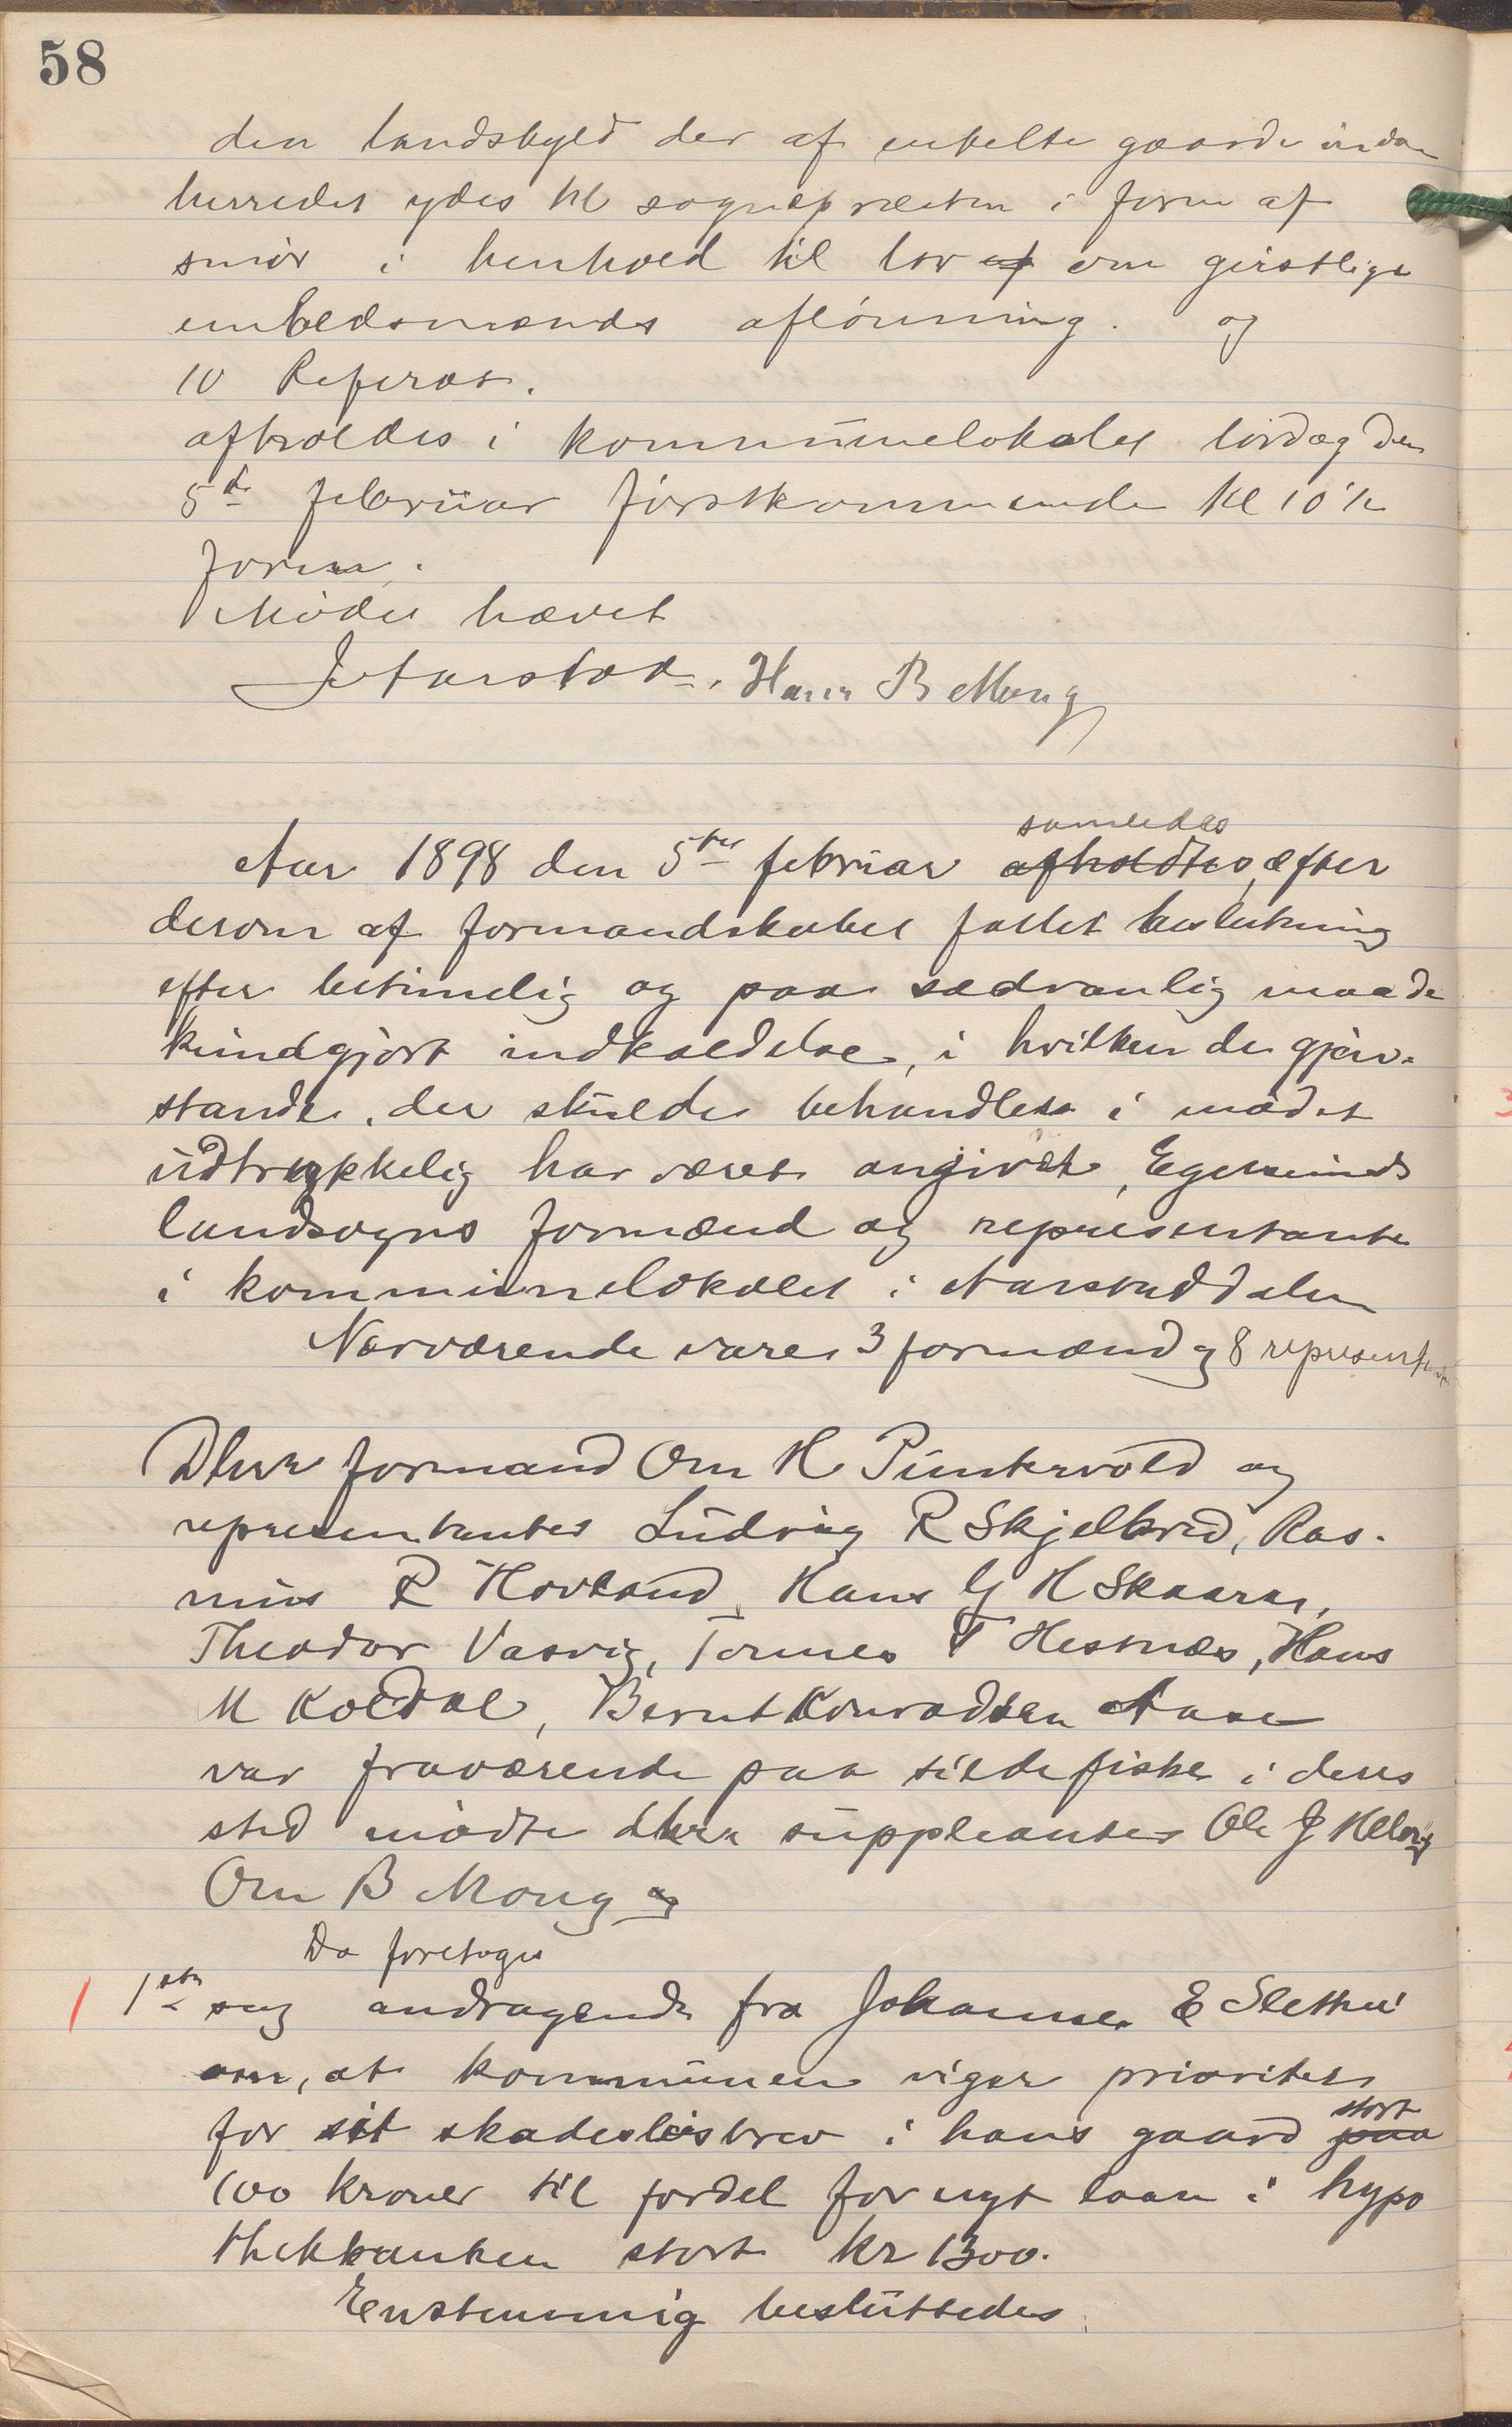 58
den landskyld der af enkelte gaarde inden
herredet ydes til sognepræsten i form af
smør i henhold til lov af om geistlige
embedsmænds aflønning. og
10 Referat.
afholdes i kommunelokalet lørdag den
5te februar førstkommende kl 10½
form.
Mødet hævet
J Aarstad. Hans B Mong
samledes
Aar 1898 den 5te februar afholdtes, efter
derom af formandskabet fattet beslutning
efter betimelig og paa sædvanlig maade
kundgjort indkaldelse, i hvilken de gjen-
stande, der skulde behandles i mødet
udtrykkelig har været angivet, Egersunds
landsogns formænd og representanter
i kommunelokalet i Aarstaddalen
Nærværende varer 3 formænd og 8 representanter
Dhrr formand Om H Puntervold og
representanter Ludvig R Skjelbred, Ras-
mus R Hovland, Hans G H Skaara,
Theodor Vasvig, Tønnes T Hestnæs, Hans
M Koldal, Bernt Konradsen Aase
var fraværende paa sildefiske i deres
sted mødte dhrr suppleanter Ole J
Om B Mong og
Da foretoges
1 1ste sag andragende fra Johannes E Slettebø
om, at kommunen viger prioritet
for sit skadesløsbrev i hans gaard paa
stort
100 kroner til fordel for nyt laan i hypo
thekbanken stort kr 1300.
Enstemmig besluttedes.